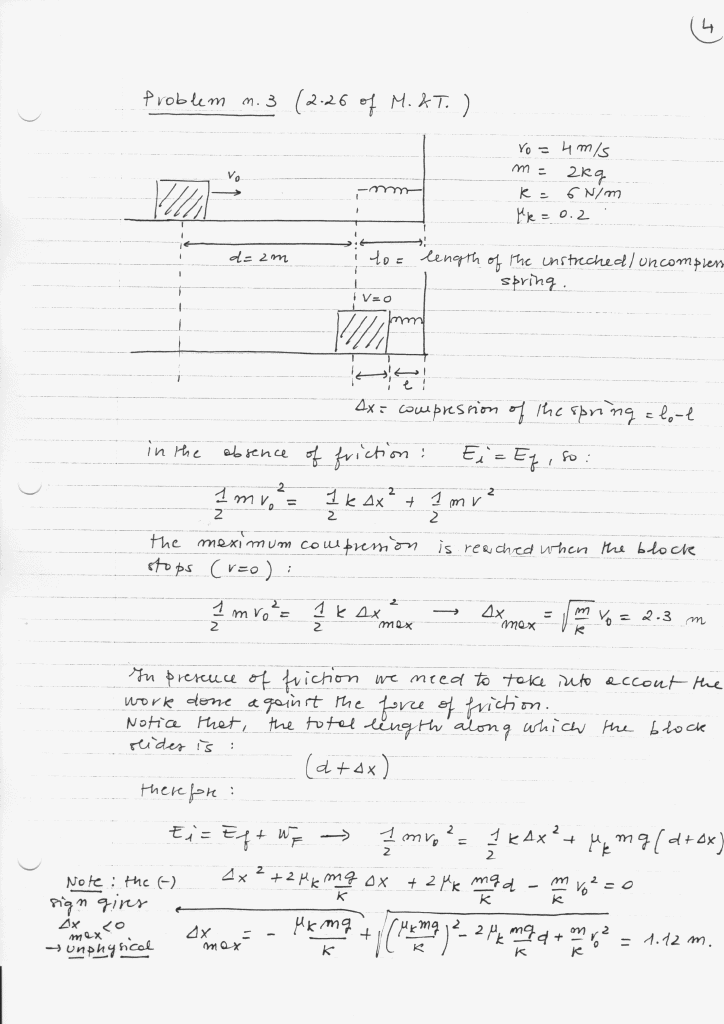 4
Problem n. 3 (2.26 of M. & T.)
v₀ = 4 m/s
m = 2kg
k = 6 N/m
μₖ = 0.2
v₀
d = 2m
l₀ = length of the unstreched/uncompress
spring.
V=0
l
Δx = compression of the spring = l₀-l
in the absence of friction : Ei = Ef , so :
1/2 m v₀² = 1/2 k Δx² + 1/2 m v²
the maximum compression is reached when the block
stops (v=0) :
1/2 m v₀² = 1/2 k Δx²max → Δxmax = √(m/k) v₀ = 2.3 m
In presence of friction we need to take into accout the
work done against the force of friction.
Notice that, the total length along which the block
slides is :
(d + Δx)
therefore :
Ei = Ef + WF → 1/2 m v₀² = 1/2 k Δx² + μₖ m g (d + Δx)
Δx² + 2 μₖ mg/k Δx + 2 μₖ mg/k d - m/k v₀² = 0
Note : the (-)
sign gives
Δxmax < 0
→ unphysical
Δxmax = - μₖmg/k + √((μₖmg/k)² - 2 μₖ mg/k d + m/k v₀²) = 1.12 m.